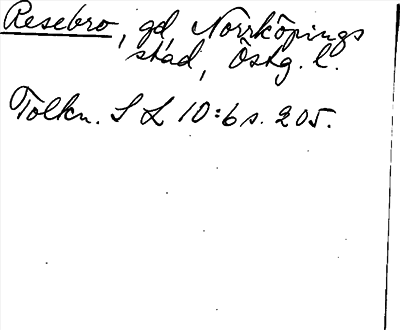 Resebro, gd, Norrköpings
stad, Östg. l.
Tolkn. S L 10:6 s. 205.